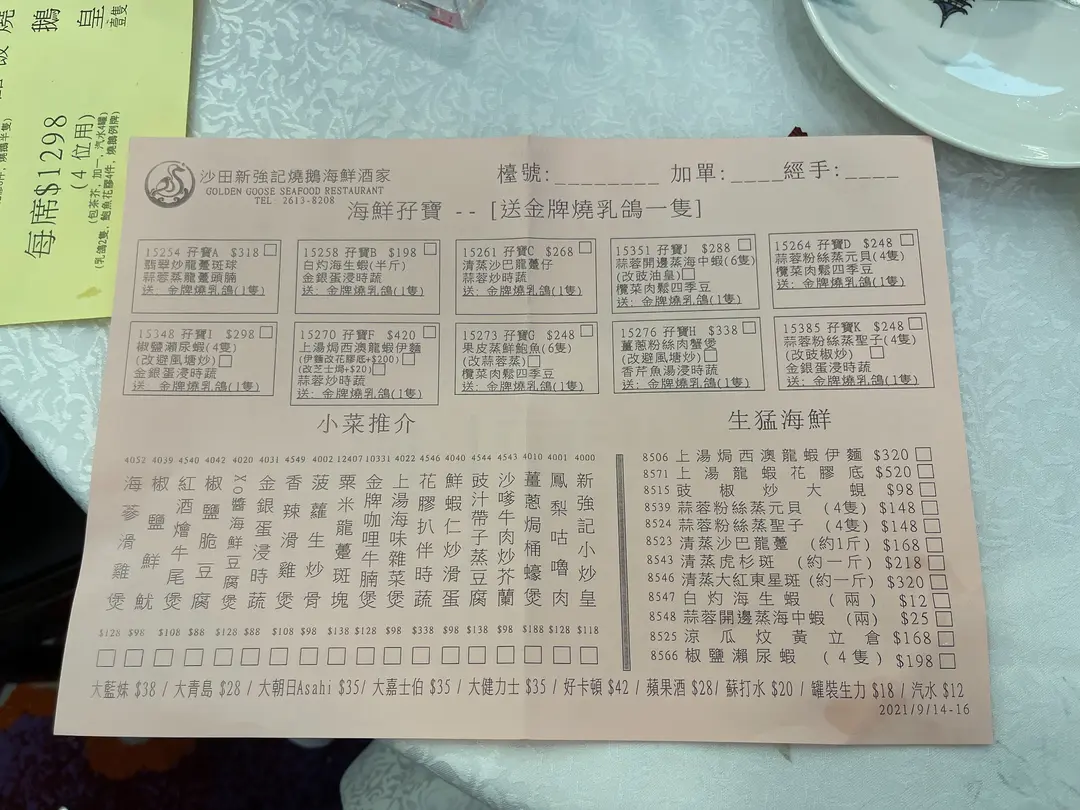 燒鵝皇
壹隻
每席$1298
(4 位用)
(包茶芥, 加一, 汽水4罐)
(乳鴿2隻, 鮑魚花膠4件, 燒鵝例牌)
沙田新強記燒鵝海鮮酒家
GOLDEN GOOSE SEAFOOD RESTAURANT
TEL: 2613-8208
檯號:________ 加單:____經手:____
海鮮孖寶 -- [送金牌燒乳鴿一隻]
15254 孖寶A $318
翡翠炒龍躉斑球
蒜蓉蒸龍躉頭腩
送: 金牌燒乳鴿(1隻)
15258 孖寶B $198
白灼海生蝦(半斤)
金銀蛋浸時蔬
送: 金牌燒乳鴿(1隻)
15261 孖寶C $268
清蒸沙巴龍躉仔
蒜蓉炒時蔬
送: 金牌燒乳鴿(1隻)
15351 孖寶J $288
蒜蓉開邊蒸海中蝦(6隻)
(改豉油皇)
欖菜肉鬆四季豆
送: 金牌燒乳鴿(1隻)
15264 孖寶D $248
蒜蓉粉絲蒸元貝(4隻)
欖菜肉鬆四季豆
送: 金牌燒乳鴿(1隻)
15348 孖寶I $298
椒鹽瀨尿蝦(4隻)
(改避風塘炒)
金銀蛋浸時蔬
送: 金牌燒乳鴿(1隻)
15270 孖寶F $420
上湯焗西澳龍蝦伊麵
(伊麵改花膠底+$200)
(改芝士焗+$20)
蒜蓉炒時蔬
送: 金牌燒乳鴿(1隻)
15273 孖寶G $248
果皮蒸鮮鮑魚(6隻)
(改蒜蓉蒸)
欖菜肉鬆四季豆
送: 金牌燒乳鴿(1隻)
15276 孖寶H $338
薑蔥粉絲肉蟹煲
(改避風塘炒)
香芹魚湯浸時蔬
送: 金牌燒乳鴿(1隻)
15385 孖寶K $248
蒜蓉粉絲蒸聖子(4隻)
(改豉椒炒)
金銀蛋浸時蔬
送: 金牌燒乳鴿(1隻)
小菜推介
4052 4039 4540 4042 4020 4031 4549 4002 12407 10331 4022 4546 4040 4544 4543 4010 4001 4000
海蔘滑雞煲
椒鹽鮮魷
紅酒燴牛尾煲
椒鹽脆豆腐
XO醬海鮮豆腐煲
金銀蛋浸時蔬
香辣滑雞煲
菠蘿生炒骨
粟米龍躉斑塊
金牌咖哩牛腩煲
上湯海味雜菜煲
花膠扒伴時蔬
鮮蝦仁炒滑蛋
豉汁帶子蒸豆腐
沙嗲牛肉炒芥蘭
薑蔥焗桶蠔煲
鳳梨咕嚕肉
新強記小炒皇
$128 $98 $108 $88 $128 $88 $108 $98 $138 $128 $98 $338 $98 $138 $98 $188 $128 $118
生猛海鮮
8506 上湯焗西澳龍蝦伊麵 $320
8571 上湯龍蝦花膠底 $520
8515 豉椒炒大蜆 $98
8539 蒜蓉粉絲蒸元貝 (4隻) $148
8524 蒜蓉粉絲蒸聖子 (4隻) $148
8523 清蒸沙巴龍躉 (約1斤) $168
8543 清蒸虎杉斑 (約一斤) $218
8546 清蒸大紅東星斑(約一斤) $320
8547 白灼海生蝦 (兩) $12
8548 蒜蓉開邊蒸海中蝦 (兩) $25
8525 涼瓜炆黃立倉 $168
8566 椒鹽瀨尿蝦 (4隻) $198
大藍妹 $38 / 大青島 $28 / 大朝日Asahi $35/ 大嘉士伯 $35 / 大健力士 $35 / 好卡頓 $42 / 蘋果酒 $28/ 蘇打水 $20 / 罐裝生力 $18 / 汽水 $12
2021/9/14-16